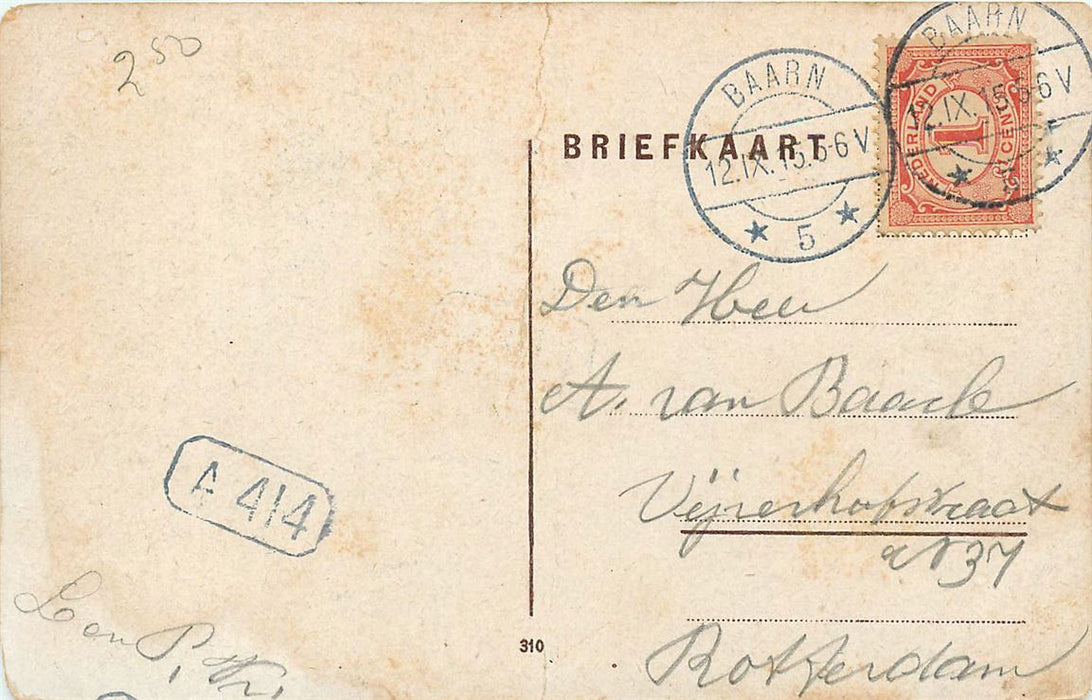 250
BRIEFKAART
BAARN
12.IX.15.5-6V
5
BAARN
12.IX.15.5-6V
NEDERLAND
1
CENT
Den Heer
A. van Baarle
Vijverhofstraat
No 37
Rotterdam
A 414
310